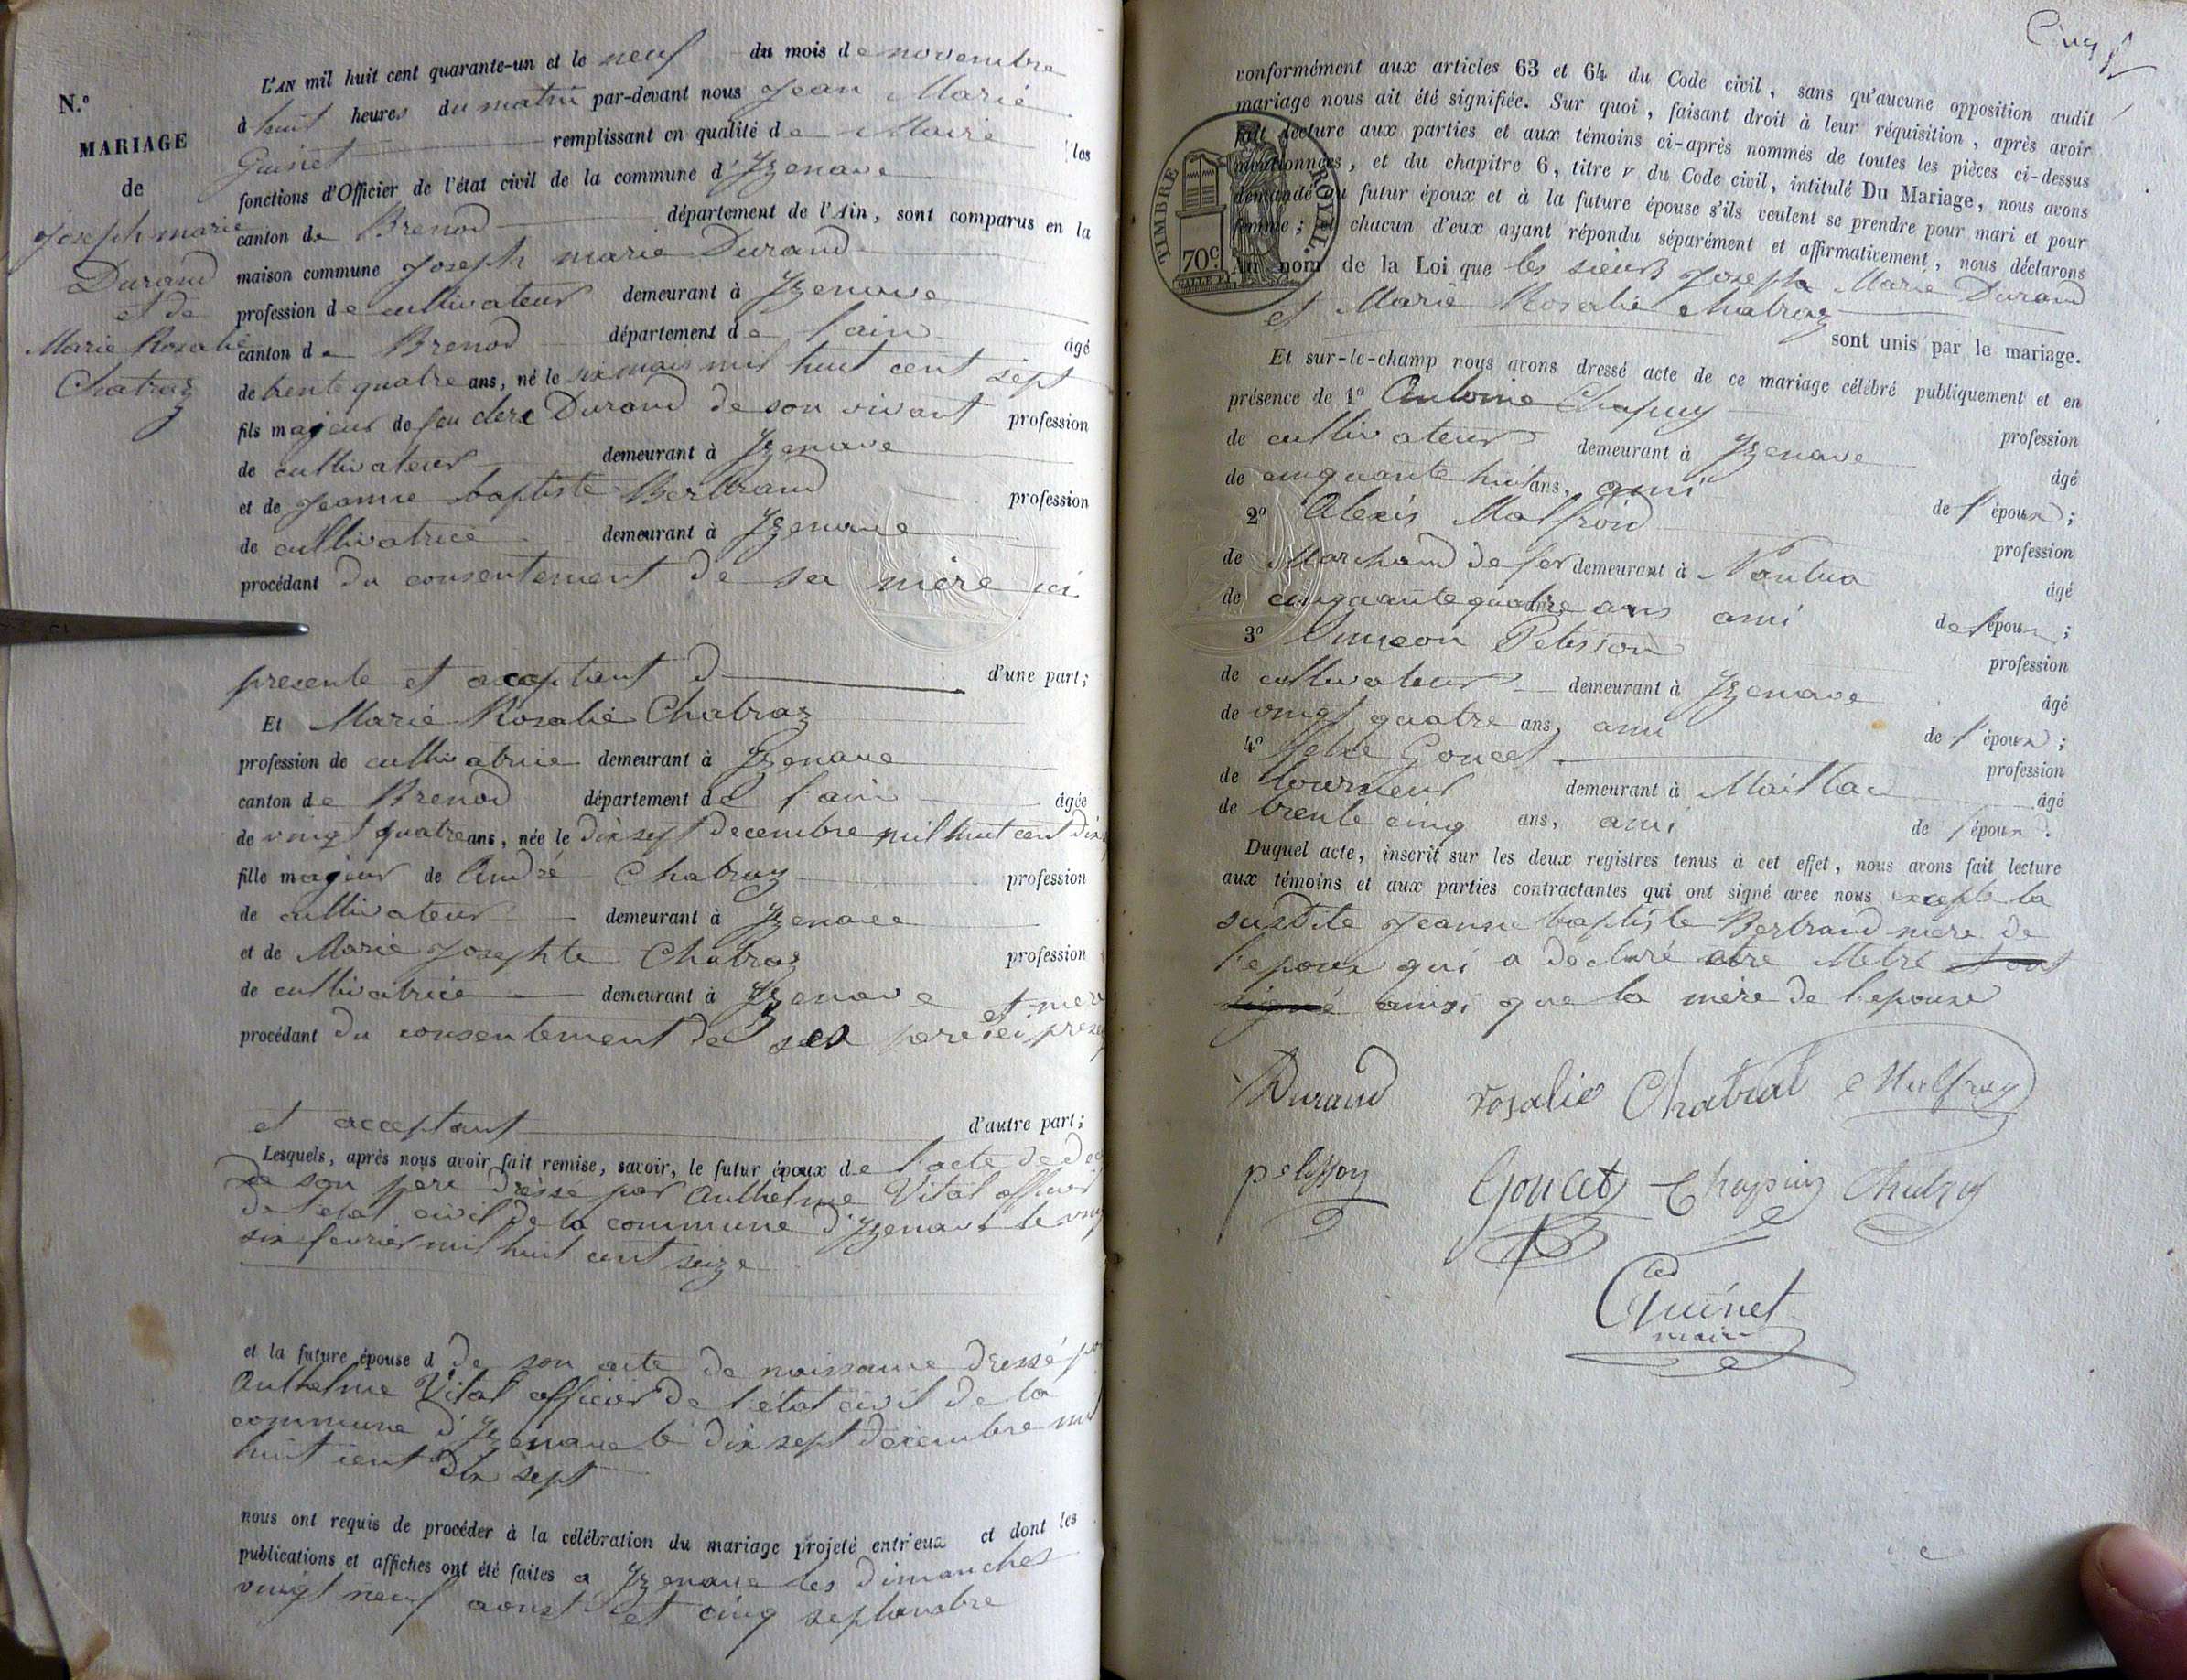 N.º
MARIAGE
de
Joseph marie
Durand
et de
Marie Rosalie
Chatraz
L'AN mil huit cent quarante-un et le neuf du mois de novembre
à huit heures du matin par-devant nous Jean Marie
Guinet remplissant en qualité de Maire les
fonctions d'Officier de l'état civil de la commune d'Izenave
canton de Brenod département de l'Ain, sont comparus en la
maison commune Joseph marie Durand
profession de cultivateur demeurant à Izenave
canton de Brenod département de l'ain âgé
de trente quatre ans, né le six mars mil huit cent sept
fils majeur de feu clere Durand de son vivant profession
de cultivateur demeurant à Izenave
et de Jeanne baptiste Bertrand profession
de cultivatrice demeurant à Izenave
procédant du consentement de sa mère ici
presente et acceptant d d'une part;
Et Marie Rosalie Chatraz
profession de cultivatrice demeurant à Izenave
canton de Brenod département de l'ain âgée
de vingt quatre ans, née le dix sept decembre mil huit cent dix
fille majeur de André Chatraz profession
de cultivateur demeurant à Izenave
et de Marie Josephte Chatraz profession
de cultivatrice demeurant à Izenave et mere
procédant du consentement de ses pere ici
et acceptant d'autre part;
Lesquels, après nous avoir fait remise, savoir, le futur époux de l'acte de
de son pere dressé par Anthelme Vital officier
de l'etat civil de la commune d'Izenave le
six fevrier mil huit cent seize
et la future épouse d de son acte de naissance dressé
Anthelme Vital officier de l'état civil de la
commune d'Izenave le dix sept decembre mil
huit cent dix sept
nous ont requis de procéder à la célébration du mariage projeté entr'eux et dont les
publications et affiches ont été faites a Izenave les dimanches
vingt neuf aoust et cinq septembre
Cinq
conformément aux articles 63 et 64 du Code civil, sans qu'aucune opposition audit
mariage nous ait été signifiée. Sur quoi, faisant droit à leur réquisition, après avoir
fait lecture aux parties et aux témoins ci-après nommés de toutes les pièces ci-dessus
mentionnées, et du chapitre 6, titre v du Code civil, intitulé Du Mariage, nous avons
demandé au futur époux et à la future épouse s'ils veulent se prendre pour mari et pour
femme; et chacun d'eux ayant répondu séparément et affirmativement, nous déclarons
Au nom de la Loi que les sieurs Joseph Marie Durand
et Marie Rosalie Chatraz
sont unis par le mariage.
TIMBRE ROYAL.
70c.
Et sur-le-champ nous avons dressé acte de ce mariage célébré publiquement et en
présence de 1º Antoine Chapuy profession
de cultivateur demeurant à Izenave âgé
de cinquante huit ans, ami de l'époux;
2º Alexis Malfroid profession
de Marchand de fer demeurant à Nantua âgé
de cinquante quatre ans ami de l'époux;
3º Simeon Pelisson profession
de cultivateur demeurant à Izenave âgé
de vingt quatre ans, ami de l'époux;
4º Goucet profession
de tourneur demeurant à Maillac âgé
de trente cinq ans, ami de l'époux.
Duquel acte, inscrit sur les deux registres tenus à cet effet, nous avons fait lecture
aux témoins et aux parties contractantes qui ont signé avec nous excepte la
susdite Jeanne baptiste Bertrand mere de
l'epoux qui a declaré etre
signé ainsi que la mère de l'epouse
Durand rosalie Chatral Malfroy
pelisson Goucet Chapuy Chatraz
Guinet
maire